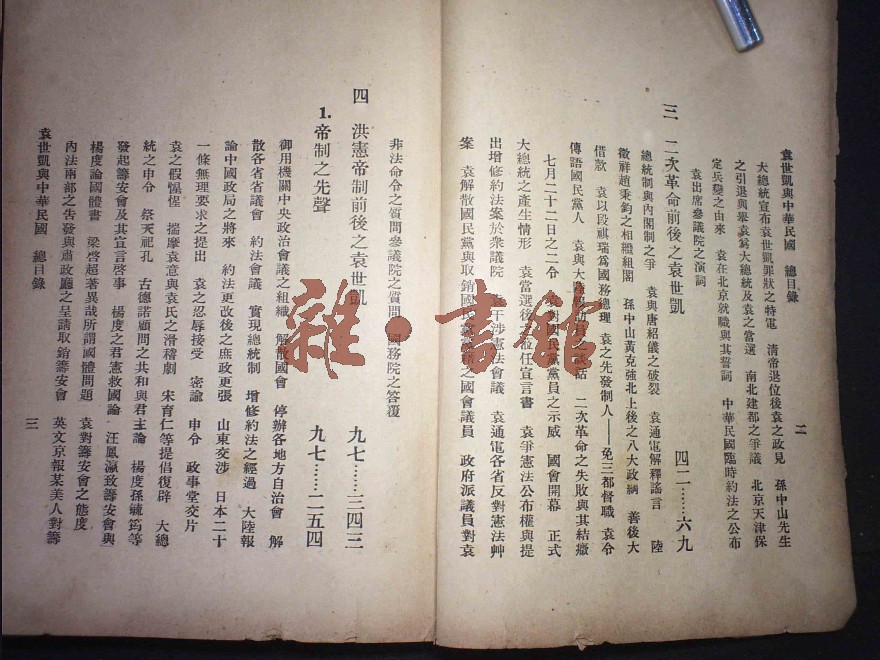 袁世凱與中華民國　總目錄　二
大總統宣布袁世凱罪狀之特電　清帝退位後袁之政見　孫中山先生
之引退與舉袁爲大總統及袁之當選　南北建都之爭議　北京天津保
定兵變之由來　袁在北京就職與其誓詞　中華民國臨時約法之公布
袁出席參議院之演詞
三　二次革命前後之袁世凱　四二……六九
總統制與內閣制之爭　袁與唐紹儀之破裂　袁通電解釋謠言　陸
徵祥趙秉鈞之相繼組閣　孫中山黃克強北上後之八大政綱　善後大
借款　袁以段祺瑞爲國務總理　袁之先發制人——免三都督職　袁令
傳語國民黨人　袁與大陸報訪員之談話　二次革命之失敗與其結癥
七月二十二日之二令　袁對國民黨黨員之示威　國會開幕　正式
大總統之產生情形　袁當選後之蒞任宣言書　袁爭憲法公布權與提
出增修約法案於衆議院　袁干涉憲法會議　袁通電各省反對憲法艸
案　袁解散國民黨與取銷國民黨黨籍之國會議員　政府派議員對袁
非法命令之質問參議院之質問　國務院之答覆
四　洪憲帝制前後之袁世凱　九七……三四三
1. 帝制之先聲　九七……二五四
御用機關中央政治會議之組織　解散國會　停辦各地方自治會　解
散各省省議會　約法會議　實現總統制　增修約法之經過　大陸報
論中國政局之將來　約法更改後之庶政更張　山東交涉　日本二十
一條無理要求之提出　袁之忍辱接受　密諭　申令　政事堂交片
袁之假惺惺　揣摩袁意與袁氏之滑稽劇　宋育仁等提倡復辟　大總
統之申令　祭天祀孔　古德諾顧問之共和與君主論　楊度孫毓筠等
發起籌安會及其宣言啓事　楊度之君憲救國論　汪鳳瀛致籌安會與
楊度論國體書　梁啓超著異哉所謂國體問題　袁對籌安會之態度
內法兩部之告發與肅政廳之呈請取銷籌安會　英文京報某美人對籌
袁世凱與中華民國　總目錄　三
雜·書館